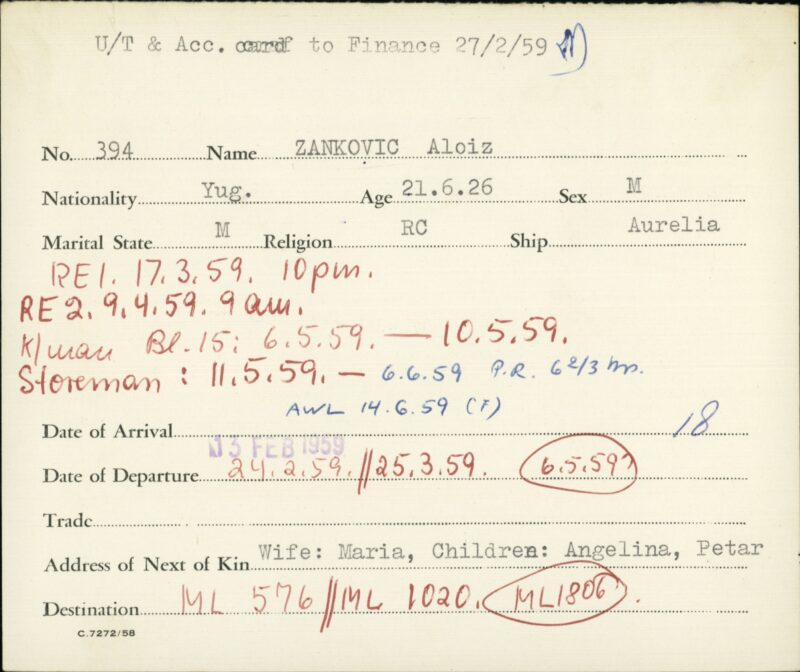 U/T & Acc. card to Finance 27/2/59
No. 394 Name ZANKOVIC Aloiz
Nationality Yug. Age 21.6.26 Sex M
Marital State M Religion RC Ship Aurelia
RE1. 17.3.59. 10pm.
RE2. 9.4.59. 9am.
K/man Bl.15: 6.5.59. — 10.5.59.
Storeman: 11.5.59. — 6.6.59 P.R. 6 2/3 hrs.
AWL 14.6.59 (F)
Date of Arrival 13 FEB 1959 18
Date of Departure 24.2.59. // 25.3.59. 6.5.59
Trade
Address of Next of Kin Wife: Maria, Children: Angelina, Petar
Destination ML 576 // ML 1020. ML1806.
C.7272/58